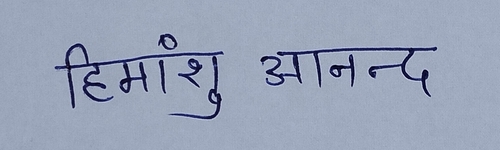 हिमांशु आनन्द